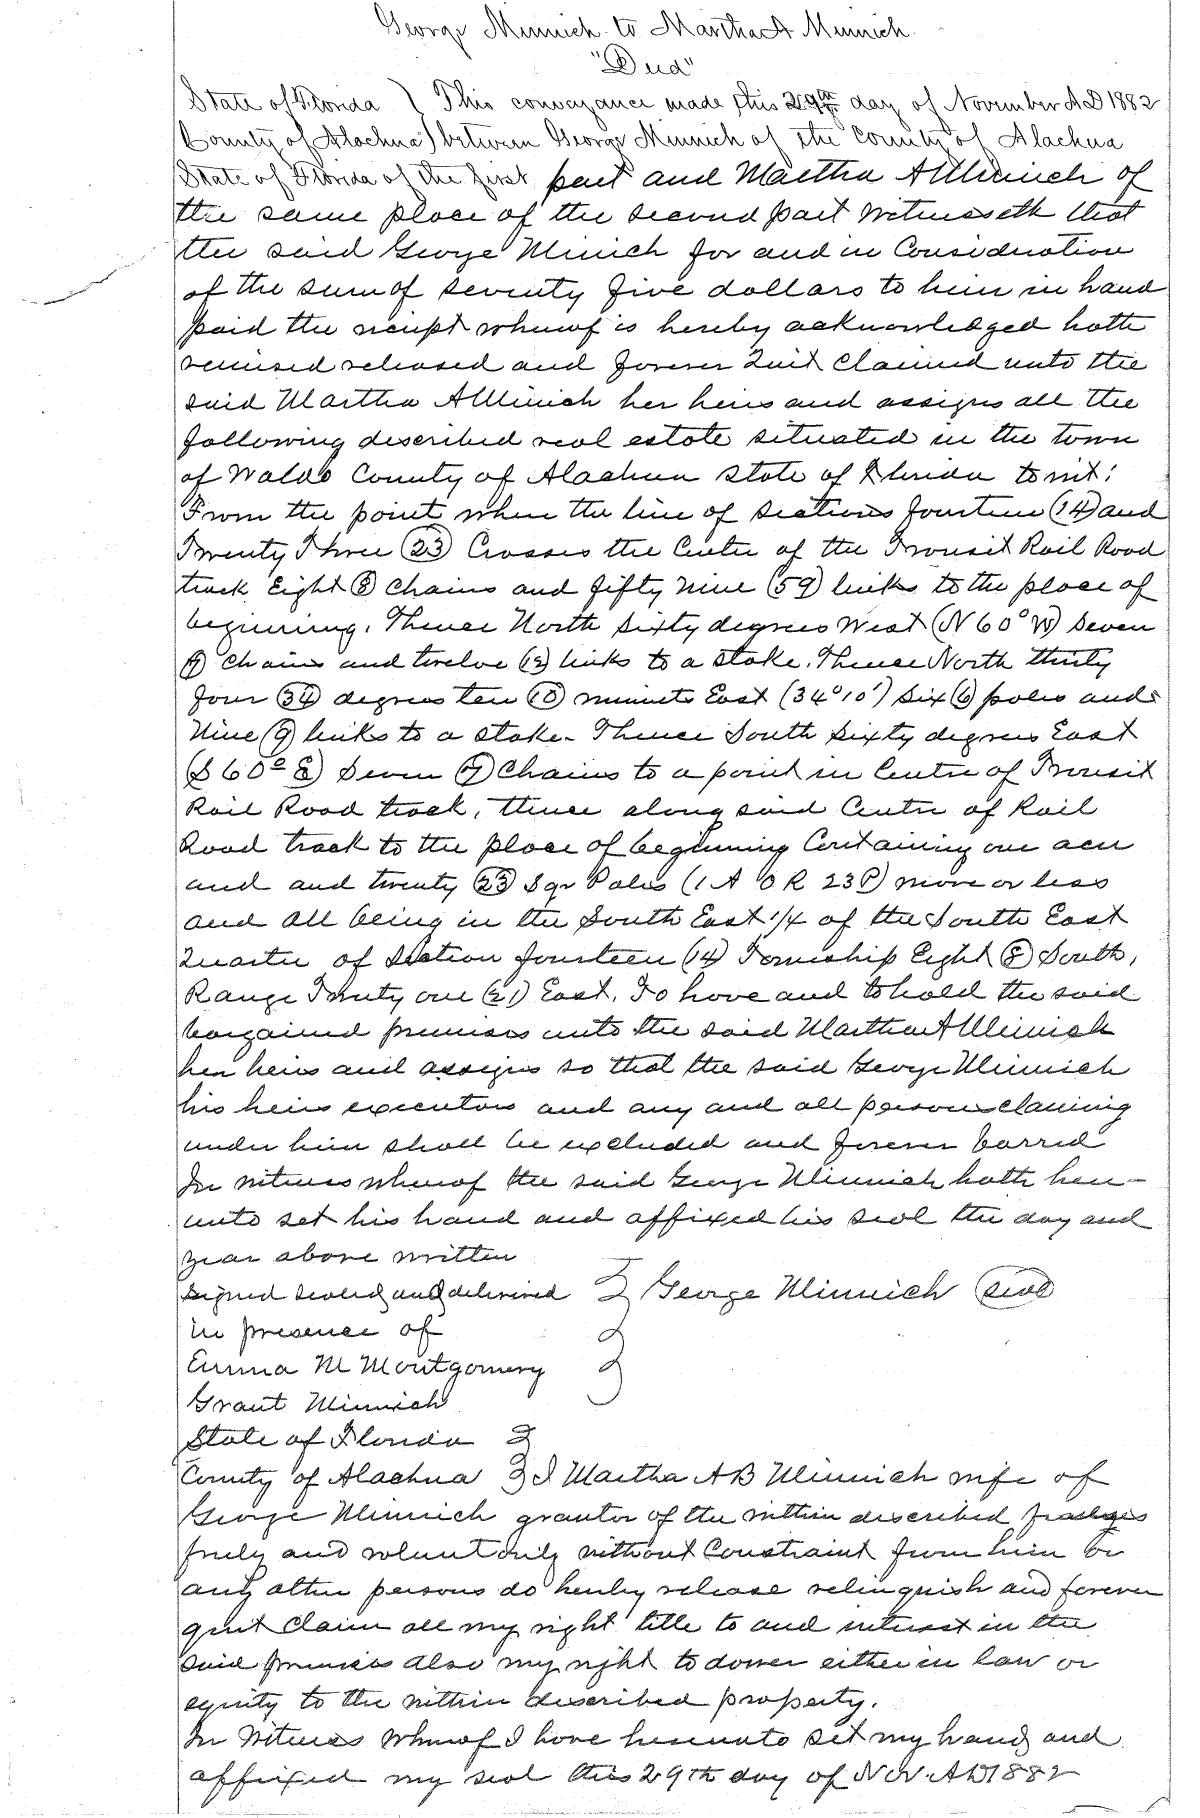 George Minnich to Martha A Minnich
"Deed"
State of Florida } This conveyance made this 29th day of November AD 1882
County of Alachua } between George Minnich of the County of Alachua
State of Florida of the first part and Martha A Minnich of
the same place of the second part Witnesseth that
the said George Minich for and in Consideration
of the sum of seventy five dollars to him in hand
paid the receipt whereof is hereby acknowledged hath
remised released and forever Quit Claimed unto the
said Martha A Minich her heirs and assigns all the
following described real estate situated in the town
of Waldo County of Alachua State of Florida to wit:
From the point where the line of sections fourteen (14) and
Twenty Three (23) Crosses the Centre of the Transit Rail Road
track Eight (8) Chains and fifty Nine (59) links to the place of
beginning. Thence North sixty degrees West (N 60° W) Seven
(7) Chains and twelve (12) links to a stake. Thence North thirty
four (34) degrees ten (10) minuets East (34° 10') Six (6) poles and
Nine (9) links to a stake - Thence South sixty degrees East
(S 60° E) Seven (7) Chains to a point in Centre of Transit
Rail Road track, thence along said Centre of Rail
Road track to the place of beginning Containing one acre
and and twenty (23) Sqr Poles (1 A 0 R 23 P) more or less
and all being in the South East 1/4 of the South East
Quarter of Section fourteen (14) Township Eight (8) South,
Range Twenty one (21) East. To have and to hold the said
bargained premises unto the said Martha A Minnich
her heirs and assigns so that the said George Minnich
his heirs executors and any and all persons claiming
under him shall be excluded and forever barred
In witness whereof the said George Minnich hath here-
unto set his hand and affixed his seal the day and
year above written
Signed sealed and delivered } George Minnich (seal)
in presence of
Emma M Montgomery
Grant Minnich
State of Florida }
County of Alachua } I Martha A B Minnich wife of
George Minnich grantor of the within described
freely and voluntarily without Constraint from him or
any other persons do hereby release relinquish and forever
quit claim all my right title to and interest in the
said premises also my right to dower either in law or
equity to the within described property.
In Witness Whereof I have hereunto set my hand and
affixed my seal this 29th day of Nov. AD 1882